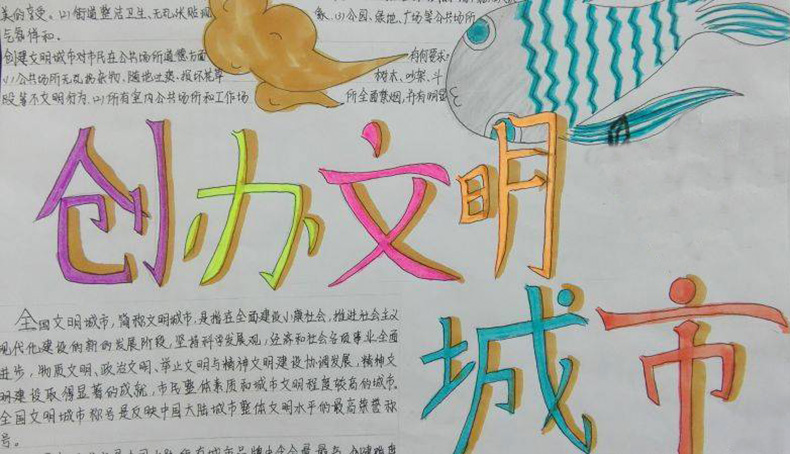 美的享受。(2)街道整洁卫生、无乱张贴现
象、(3)公园、绿地、广场等公共场所
气氛祥和。
创建文明城市对市民在公共场所道德方面
有何要求:
(1)公共场所无乱扔杂物、随地吐痰、损坏花草
树木、吵架、斗
殴等不文明行为、(2)所有室内公共场所和工作场
所全面禁烟,并有明显
创办文明
城市
全国文明城市,简称文明城市,是指在全面建设小康社会,推进社会主义
现代化建设的新的发展阶段,坚持科学发展观,经济和社会各级事业全面
进步,物质文明、政治文明、举止文明与精神文明建设协调发展,精神文
明建设取得显著的成就,市民整体素质和城市文明程度较高的城市。
全国文明城市称号是反映中国大陆城市整体文明水平的最高荣誉称
号。